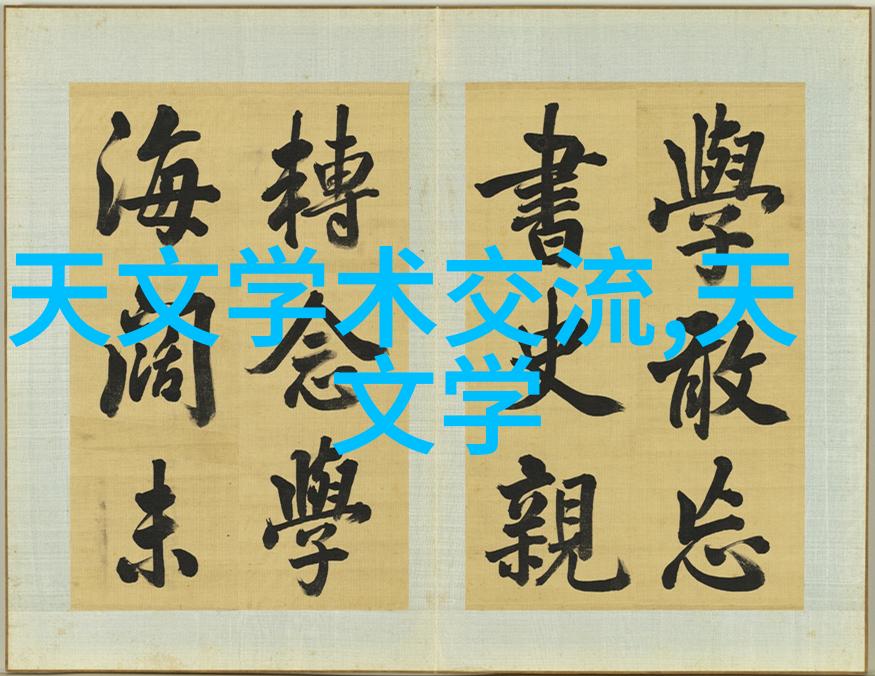 天文学术交流,天
文学
學敢忘
書史親
轉念學
海闊未